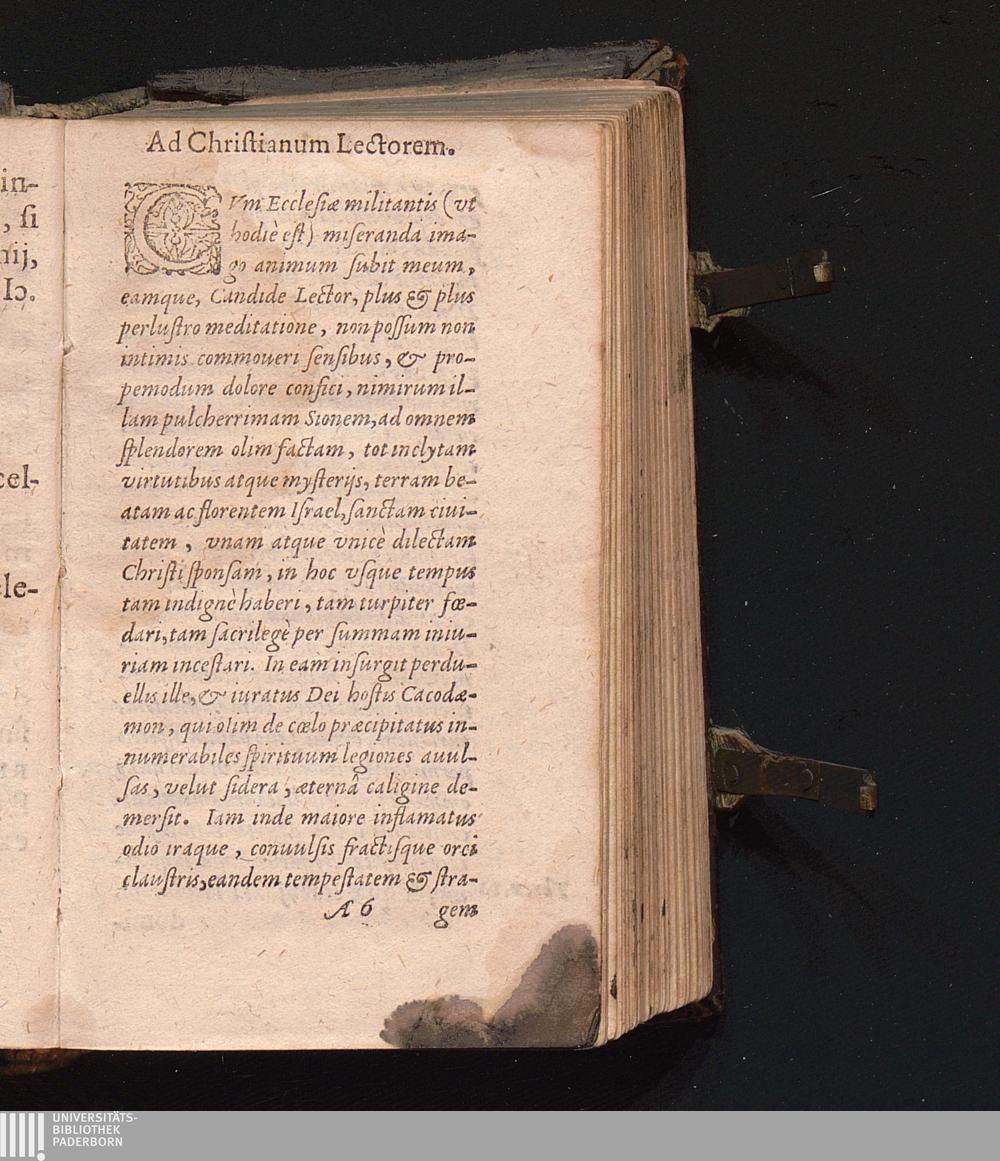 in-
, ſi
nij,
Io.
cel-
le-
Ad Chriſtianum Lectorem.
CVm Eccleſiæ militantis (vt
hodiè eſt) miſeranda ima-
go animum ſubit meum,
eamque, Candide Lector, plus & plus
perluſtro meditatione, non poſſum non
intimis commoueri ſenſibus, & pro-
pemodum dolore confici, nimirum il-
lam pulcherrimam Sionem, ad omnem
ſplendorem olim factam, tot inclytam
virtutibus atque myſterijs, terram be-
atam ac florentem Iſrael, ſanctam ciui-
tatem, vnam atque vnicè dilectam
Chriſti ſponſam, in hoc vſque tempus
tam indignè haberi, tam turpiter fœ-
dari, tam ſacrilegè per ſummam iniu-
riam inceſtari. In eam inſurgit perdu-
ellis ille, & iuratus Dei hoſtis Cacodæ-
mon, qui olim de cœlo præcipitatus in-
numerabiles ſpirituum legiones auul-
ſas, velut ſidera, æternâ caligine de-
merſit. Iam inde maiore inflamatus
odio iraque, conuulſis fractiſque orci
clauſtris, eandem tempeſtatem & ſtra-
A 6 gem
UNIVERSITÄTS-
BIBLIOTHEK
PADERBORN